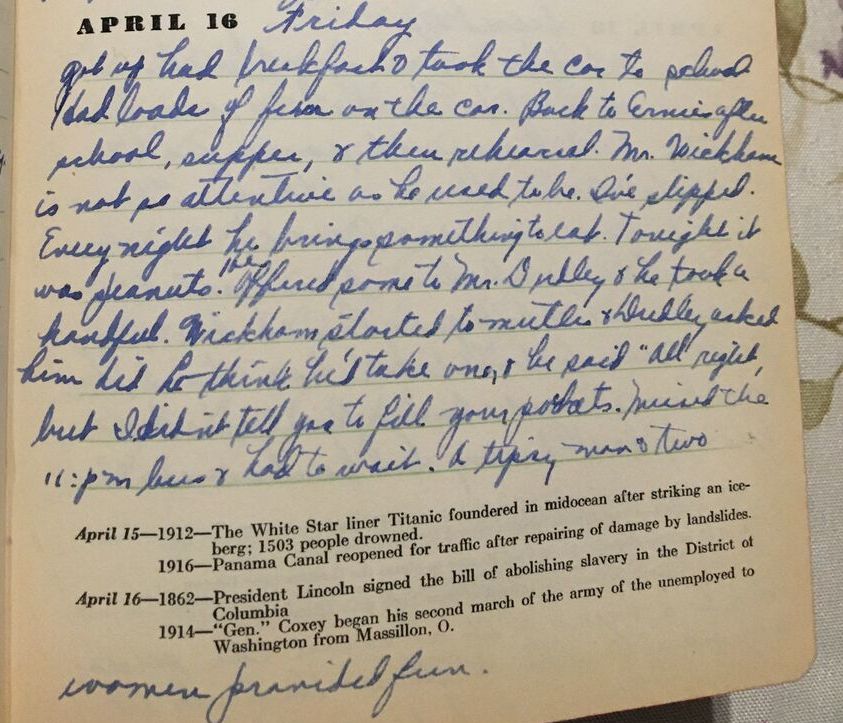 APRIL 16 Friday
got up had brekfast & took the car to school
Had loads of fun on the car. Back to Ernies after
school, supper, & then rehearsal. Mr. Wickham
is not so attentive as he used to be. I've slipped.
Every night he brings something to eat. Tonight it
was peanuts. He offered some to Mr. Dudley & he took a
handful. Wickham started to mutter & Dudley asked
him did he think he'd take one, & he said "All right,
but I didn't tell you to fill your pockets. Missed the
11:pm bus & had to wait. A tipsy man & two
April 15—1912—The White Star liner Titanic foundered in midocean after striking an ice-
berg; 1503 people drowned.
1916—Panama Canal reopened for traffic after repairing of damage by landslides.
April 16—1862—President Lincoln signed the bill of abolishing slavery in the District of
Columbia
1914—"Gen." Coxey began his second march of the army of the unemployed to
Washington from Massillon, O.
women provided fun.